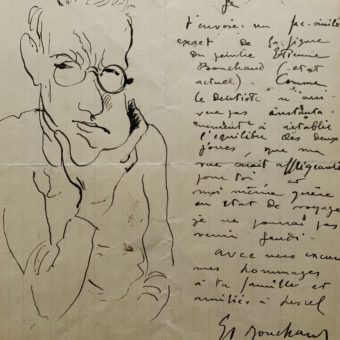 Je
t'envoie un fac-similé
exact de la figure
du peintre Etienne
Bouchaud (état
actuel) - Comme
le dentiste n'arri-
vera pas
à rétablir
l'équilibre des deux
joues que ma
vue serait affligeante
pour toi et
moi même guère
en état de voyager
je ne pourrai pas
venir jeudi -
avec mes excuses
mes hommages
à ta famille et
amitiés à
Et Bouchaud